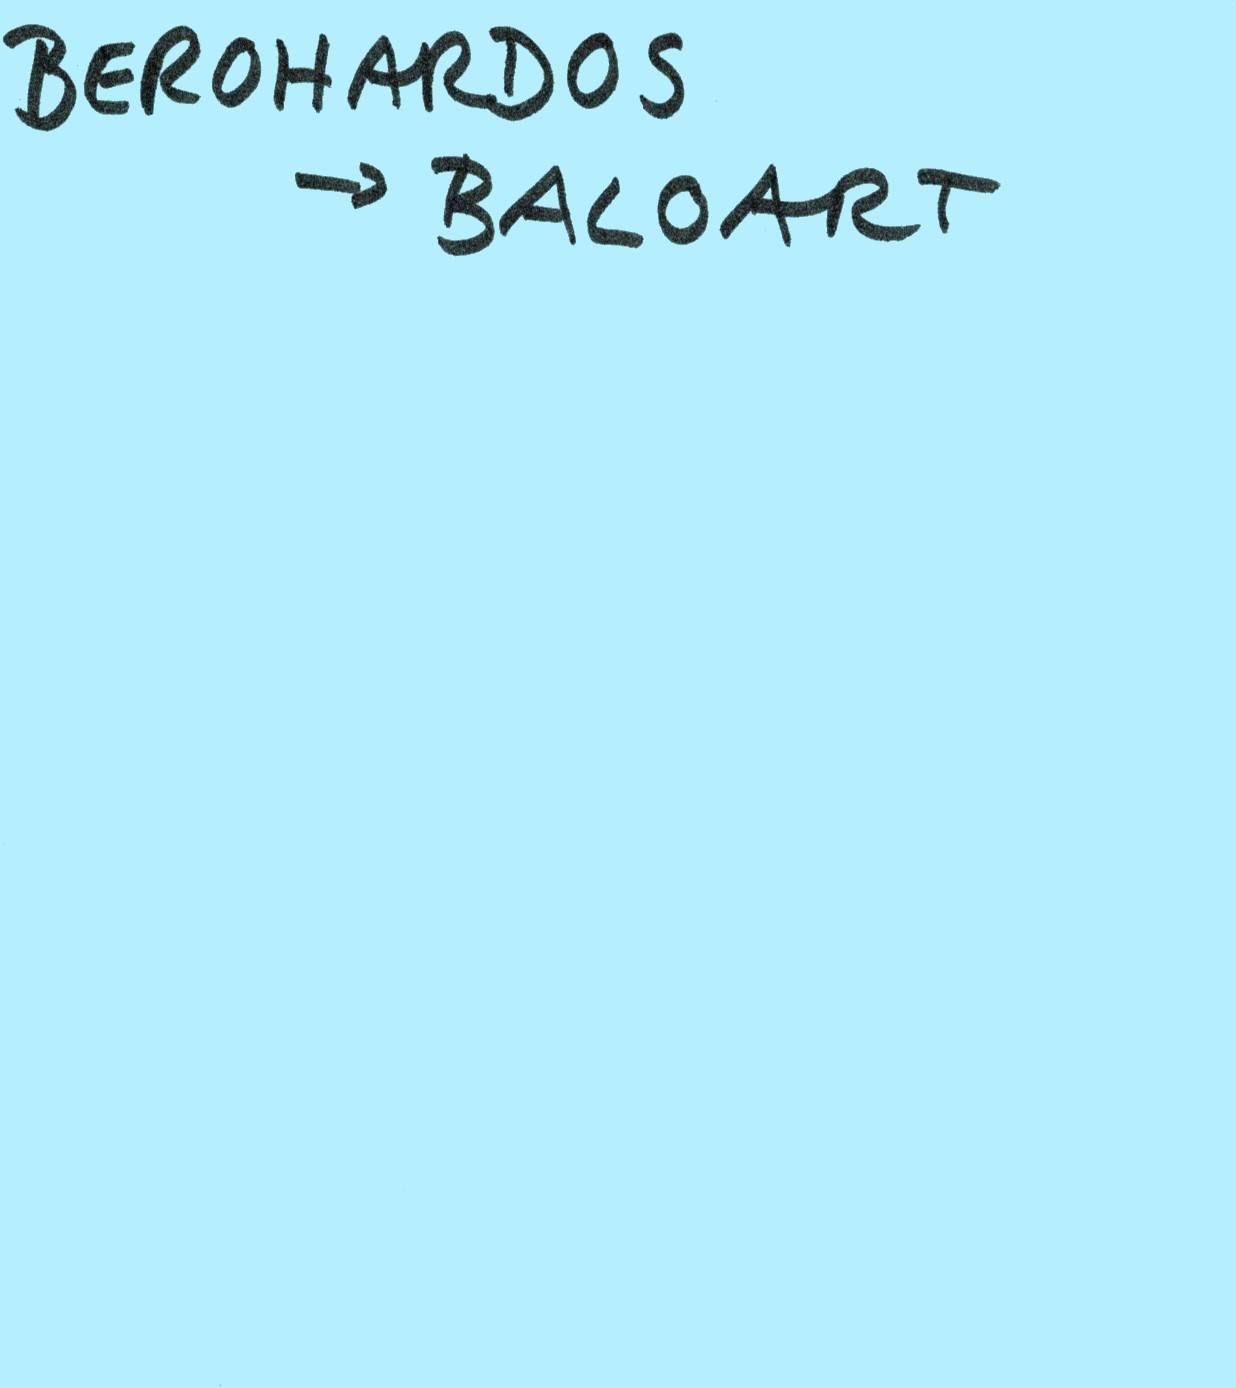 BEROHARDOS
→ BALOART